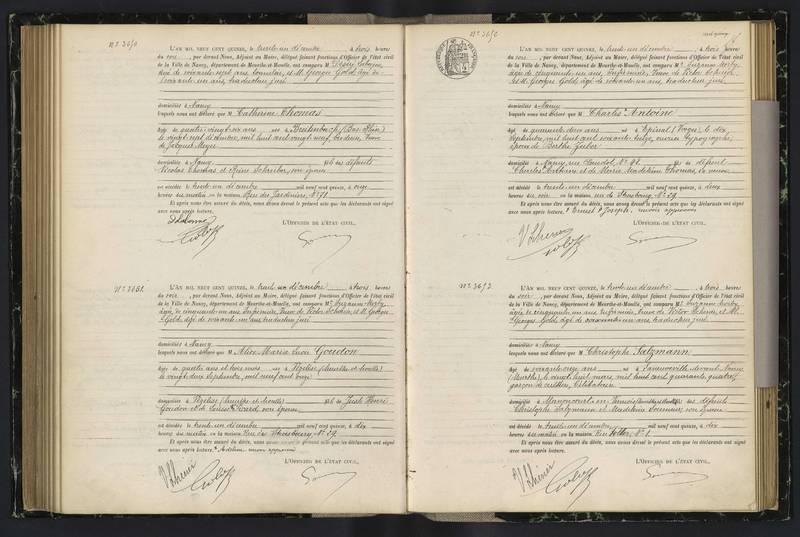 N° 3649
L'AN MIL NEUF CENT QUINZE, le trente un décembre, à trois heures
du soir, par devant Nous, Adjoint au Maire, délégué faisant fonctions d'Officier de l'état civil
de la Ville de Nancy, département de Meurthe-et-Moselle, ont comparu M.
âgé de soixante sept ans, et M. Georges Gold, âgé de
soixante un ans, traducteur juré
domiciliés à Nancy
lesquels nous ont déclaré que M Catherine Thomas
âgé de quatre-vingt six ans né à Breitenbach (Bas-Rhin)
le vingt sept décembre, mil huit cent vingt neuf, Veuve
de Jacques Meyer
domicilié à Nancy fils de défunts
Nicolas Thomas et Reine Schreiber, son épouse
est décédé le trente un décembre mil neuf cent quinze, à onze
heures du matin en la maison Rue des Jardiniers, N° 71
Et après nous être assuré du décès, nous avons dressé le présent acte que les déclarants ont signé
avec nous après lecture.
L'OFFICIER DE L'ÉTAT CIVIL,
N° 3651
L'AN MIL NEUF CENT QUINZE, le trente un décembre, à trois heures
du soir, par devant Nous, Adjoint au Maire, délégué faisant fonctions d'Officier de l'état civil
de la Ville de Nancy, département de Meurthe-et-Moselle, ont comparu M. Suzanne
âgée de cinquante un ans, Infirmière, Veuve de Victor et M. Georges
Gold, âgé de soixante un ans traducteur juré
domiciliés à Nancy
lesquels nous ont déclaré que M Alice Maria Lucie Goudon
âgé de quatre ans et trois mois né à Vézelise (Meurthe et Moselle)
le vingt deux Septembre, mil neuf cent onze
domicilié à Vézelise (Meurthe et Moselle) fils de Just Henri
Goudon et de Louise son épouse
est décédé le trente un décembre mil neuf cent quinze, à dix
heures du matin en la maison Rue de Strasbourg, N° 29
Et après nous être assuré du décès, nous avons dressé le présent acte que les déclarants ont signé
avec nous après lecture.
L'OFFICIER DE L'ÉTAT CIVIL,
N° 3650
L'AN MIL NEUF CENT QUINZE, le trente un décembre, à trois heures
du soir, par devant Nous, Adjoint au Maire, délégué faisant fonctions d'Officier de l'état civil
de la Ville de Nancy, département de Meurthe-et-Moselle, ont comparu M. Suzanne
âgée de cinquante un ans, Infirmière, Veuve de Victor
et M. Georges Gold, âgé de soixante un ans, traducteur juré
domiciliés à Nancy
lesquels nous ont déclaré que M Charles Antoine
âgé de quarante deux ans né à Epinal (Vosges) le dix
Septembre, mil huit cent soixante treize, ouvrier typographe,
époux de Berthe
domicilié à Nancy, rue fils de défunt
Charles Antoine et de Marie Madeleine Thomas, sa veuve
est décédé le trente un décembre mil neuf cent quinze, à deux
heures du soir en la maison rue de Strasbourg, N° 29
Et après nous être assuré du décès, nous avons dressé le présent acte que les déclarants ont signé
avec nous après lecture.
L'OFFICIER DE L'ÉTAT CIVIL,
N° 3652
L'AN MIL NEUF CENT QUINZE, le trente un décembre, à trois heures
du soir, par devant Nous, Adjoint au Maire, délégué faisant fonctions d'Officier de l'état civil
de la Ville de Nancy, département de Meurthe-et-Moselle, ont comparu M. Suzanne
âgée de cinquante un ans Infirmière, Veuve de Victor et M.
Georges Gold, âgé de soixante un ans, traducteur juré
domiciliés à Nancy
lesquels nous ont déclaré que M Christophe Salzmann
âgé de soixante onze ans né à Laneuveville devant Nancy
(Meurthe), le vingt huit mars, mil huit cent quarante quatre,
garçon de Célibataire
domicilié à fils de défunts
Christophe Salzmann et Madeleine son épouse
est décédé le trente un décembre mil neuf cent quinze, à dix
heures du matin en la maison Rue
Et après nous être assuré du décès, nous avons dressé le présent acte que les déclarants ont signé
avec nous après lecture.
L'OFFICIER DE L'ÉTAT CIVIL,